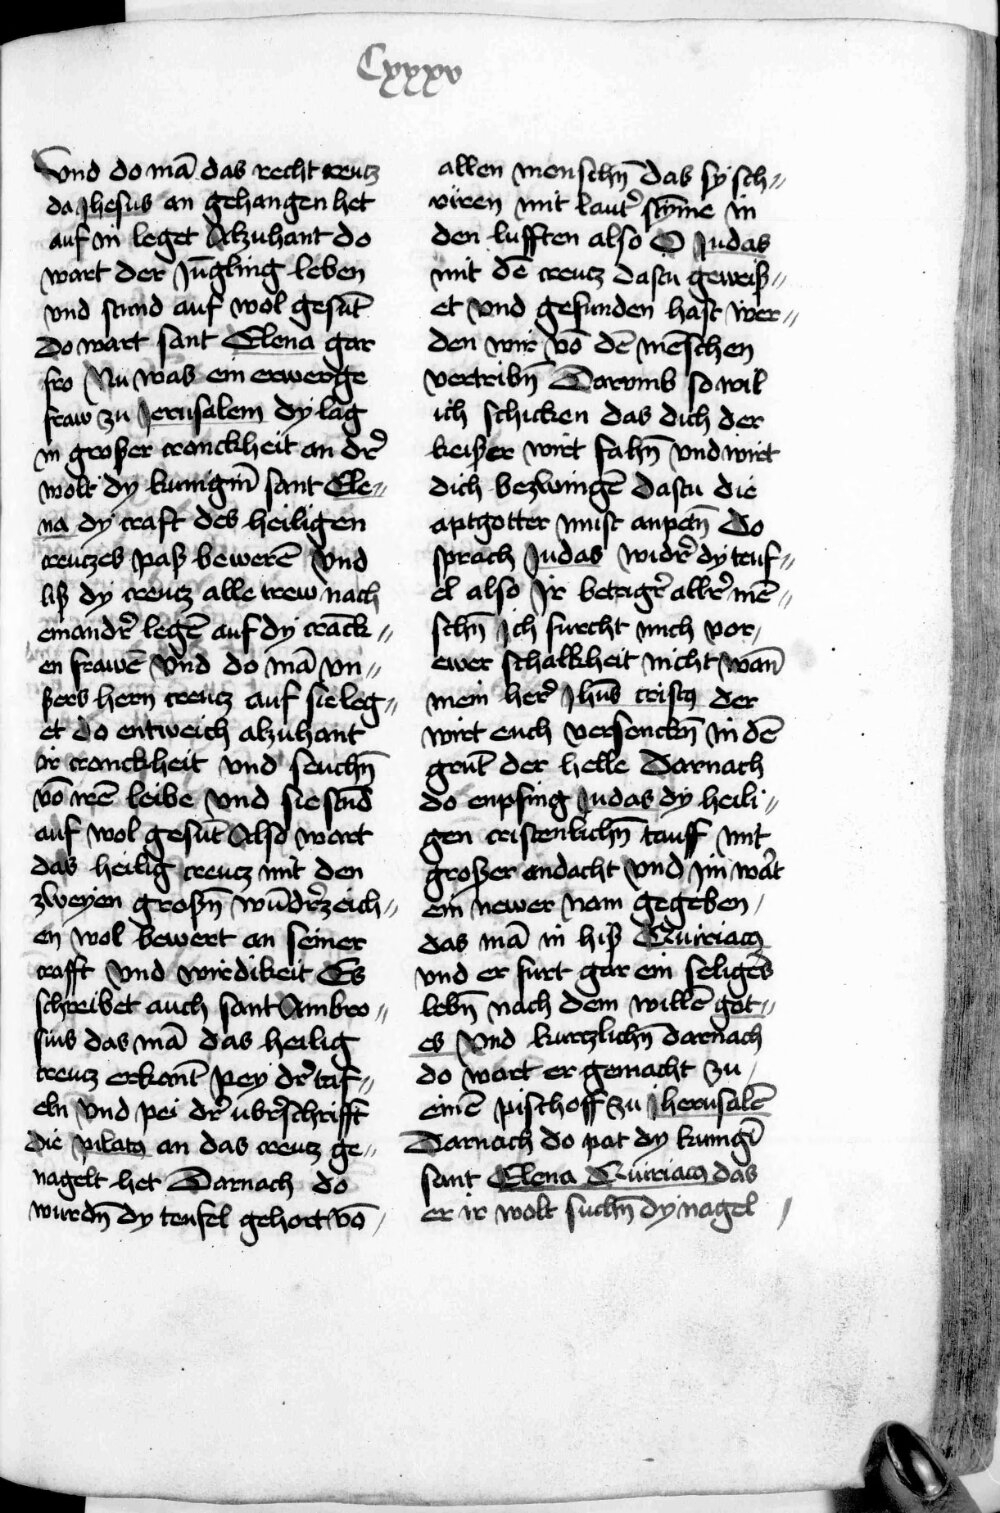 Cxxxv
Vnd do mā das recht creutz
da Jhesus an gehangen het
auf in leget Alzuhant do
wart der Jūgling leben
vnd stund auf wol gesūt
Do wart sant Elena gar
fro Nu was ein erwerdge
fraw zu Jerusalem dy lag
in großer cranckheit an dr̄
wolt dy kunigīn sant Ele⸗
na dy craft des heiligen
creutzes paß bewerē Vnd
liß dy creutz alle trew nach
einandr̄ legē auf dy cranck⸗
en frawē Vnd do mā vn⸗
ßers hern creutz auf sie leg⸗
et do entweich alzuhant
ir cranckheit vnd seuchn̄
vō irē leibe Vnd sie stūd
auf wol gesūt Also wart
das heilig creutz mit den
zweyen großn̄ wūdr̄zeich⸗
en wol bewert an seiner
crafft Vnd wirdikeit Es
schreibet auch sant Ambro⸗
sius das mā das heilig
creutz erkant pey dr̄ taf⸗
eln Vnd pei dr̄ vbr̄schrifft
die pilatꝯ an das creutz ge⸗
nagelt het Darnach do
wurdn̄ dy teufel gehort vō
allen menschn̄ das sy sch⸗
riren mit lautr̄ stȳme in
den lufften also O Judas
mit dē creutz dastu geweiß⸗
et Vnd gefunden hast wer⸗
den wir vō dē mēschen
vertribn̄ Darvmb so wil
ich schicken das dich der
keißer wirt fahn̄ Vnd wirt
dich bezwingē dastu die
aptgotter must anpetn̄ Do
sprach Judas widr̄ dy teuf⸗
el also Ir betrigr̄ allr̄ mē⸗
schn̄ Ich furcht mich vor
ewer schalkheit nicht wan̄
mein her̄ Jhūs cristꝯ der
wirt euch versenckn̄ in dē
grūt der helle Darnach
do enpfing Judas dy heili⸗
gen cristenlichn̄ tauff mit
großer andacht Vnd im wart
ein newer nam gegeben
das mā in hiß Quiriacꝯ
vnd er furt gar ein seliges
lebn̄ nach dem willē got⸗
es Vnd kurtzlichn̄ darnach
do wart er gemacht zu
einē pischoff zu Jherusalē
Darnach do pat dy kunigī
sant Elena Quiriacꝯ das
er ir wolt suchn̄ dy nagel